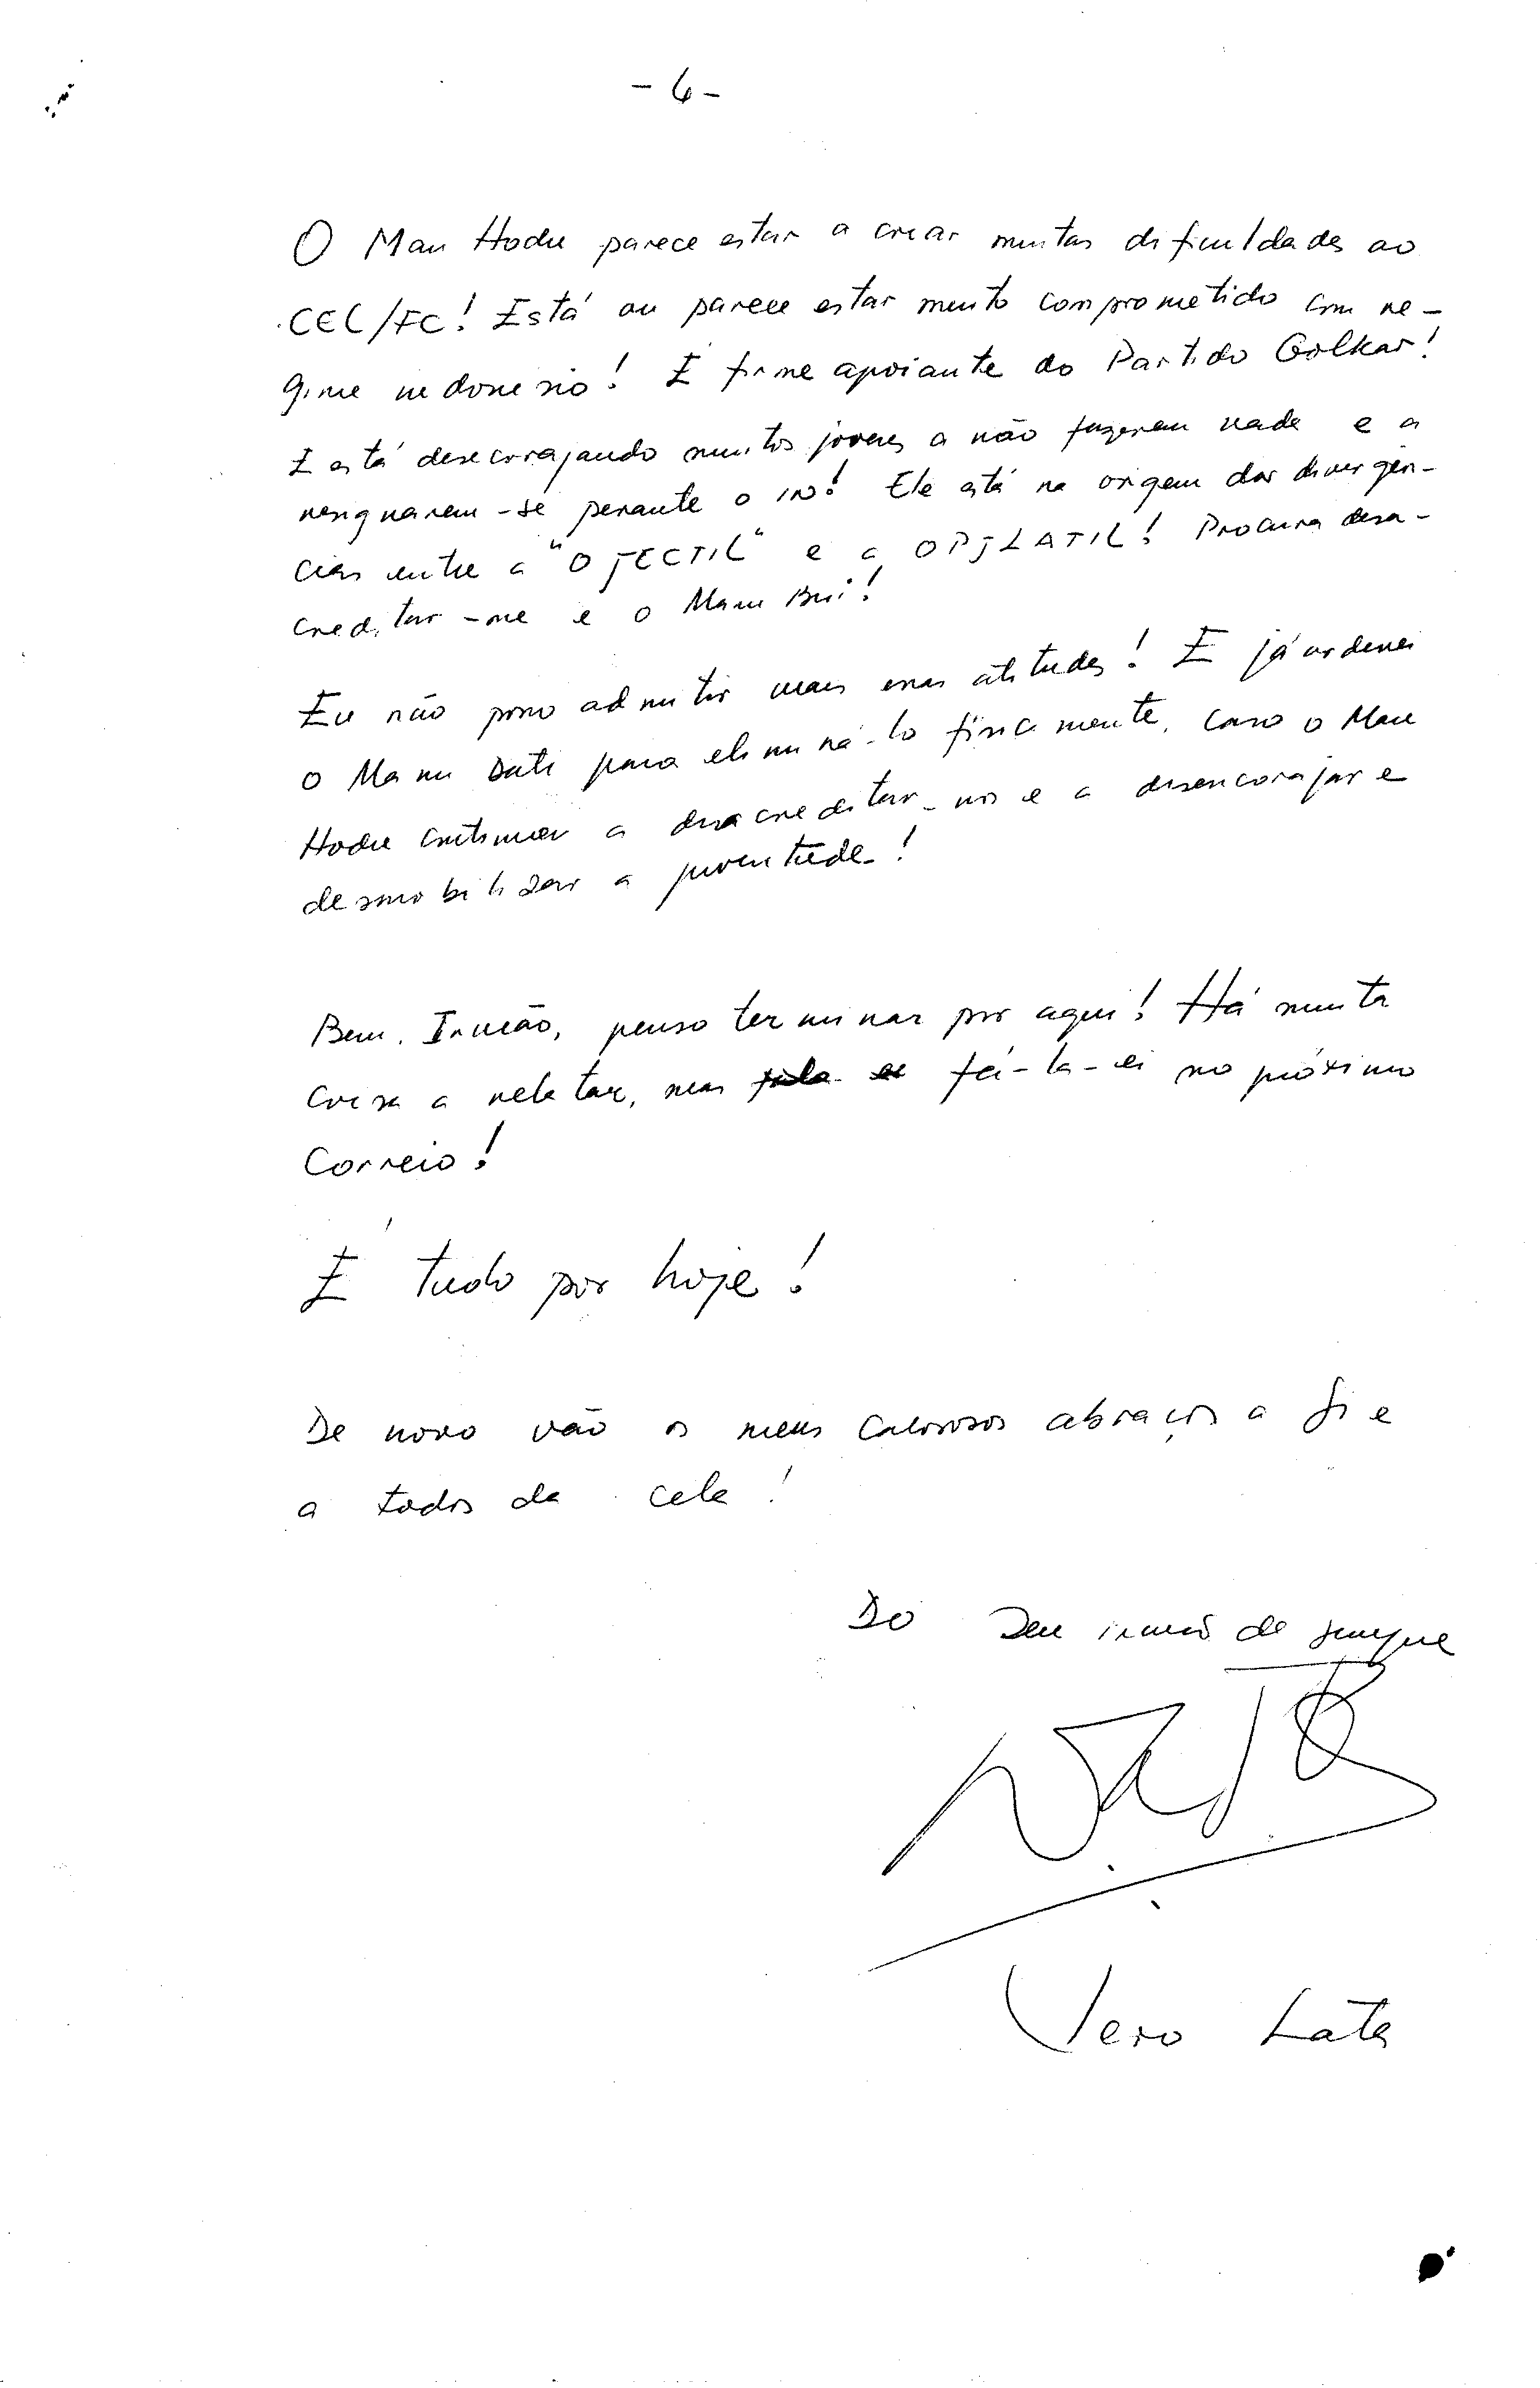 - 6 -
O Mau Hodu parece estar a criar muitas dificuldades ao
CEL/FC! Está ou parece estar muito comprometido com re-
gime indonésio! É firme apoiante do Partido Golkar!
Está desecorajando muitos jovens a não fazerem nada e a
resignarem-se perante o IN! Ele está na origem das divergên-
cias entre a "OJECTIL" e a OPJLATIL! Procura desa-
creditar-me e o Mau Bui!
Eu não posso admitir mais essas atitudes! E já ordenei
o Manu Dati para eliminá-lo fisicamente, caso o Mau
Hodu continuar a desacreditar-nos e a desencorajar e
desmobilizar a juventude!
Bem. Irmão, penso terminar por aqui! Há muita
coisa a relatar, mas fá-la-ei no próximo
Correio!
É tudo por hoje!
De novo vão os meus calorosos abraços a si e
a todos da cela!
Do Seu irmão de sempre
Vero Lata